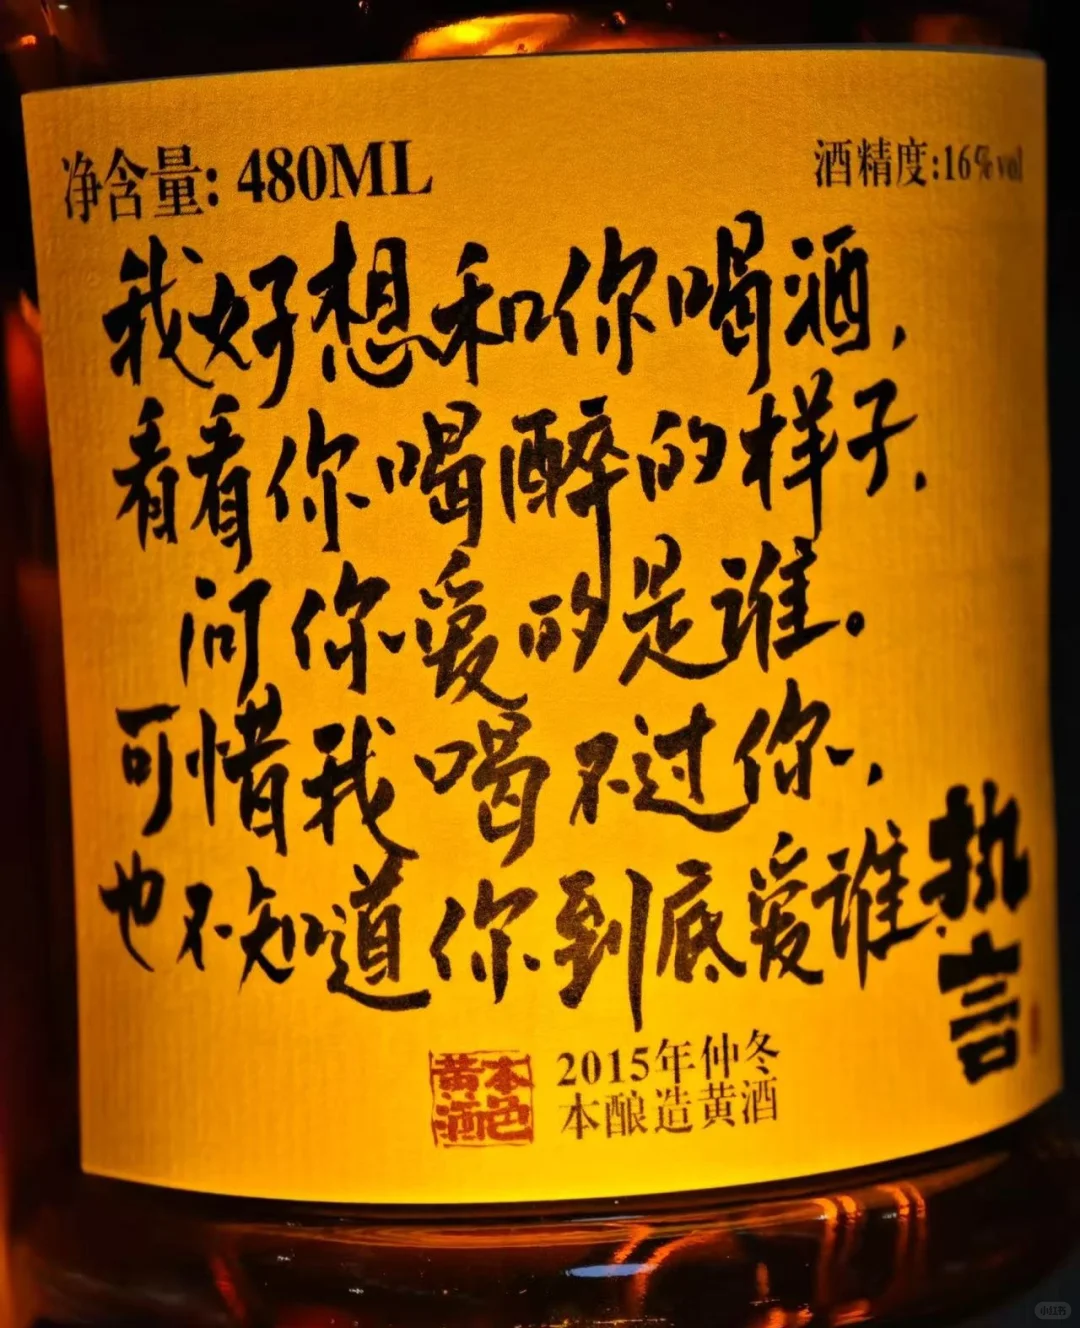 净含量: 480ML
酒精度:16%vol
我好想和你喝酒,
看看你喝醉的样子,
问你爱的是谁。
可惜我喝不过你,
也不知道你到底爱谁.
执言
本色黄酒
2015年仲冬
本酿造黄酒
小红书